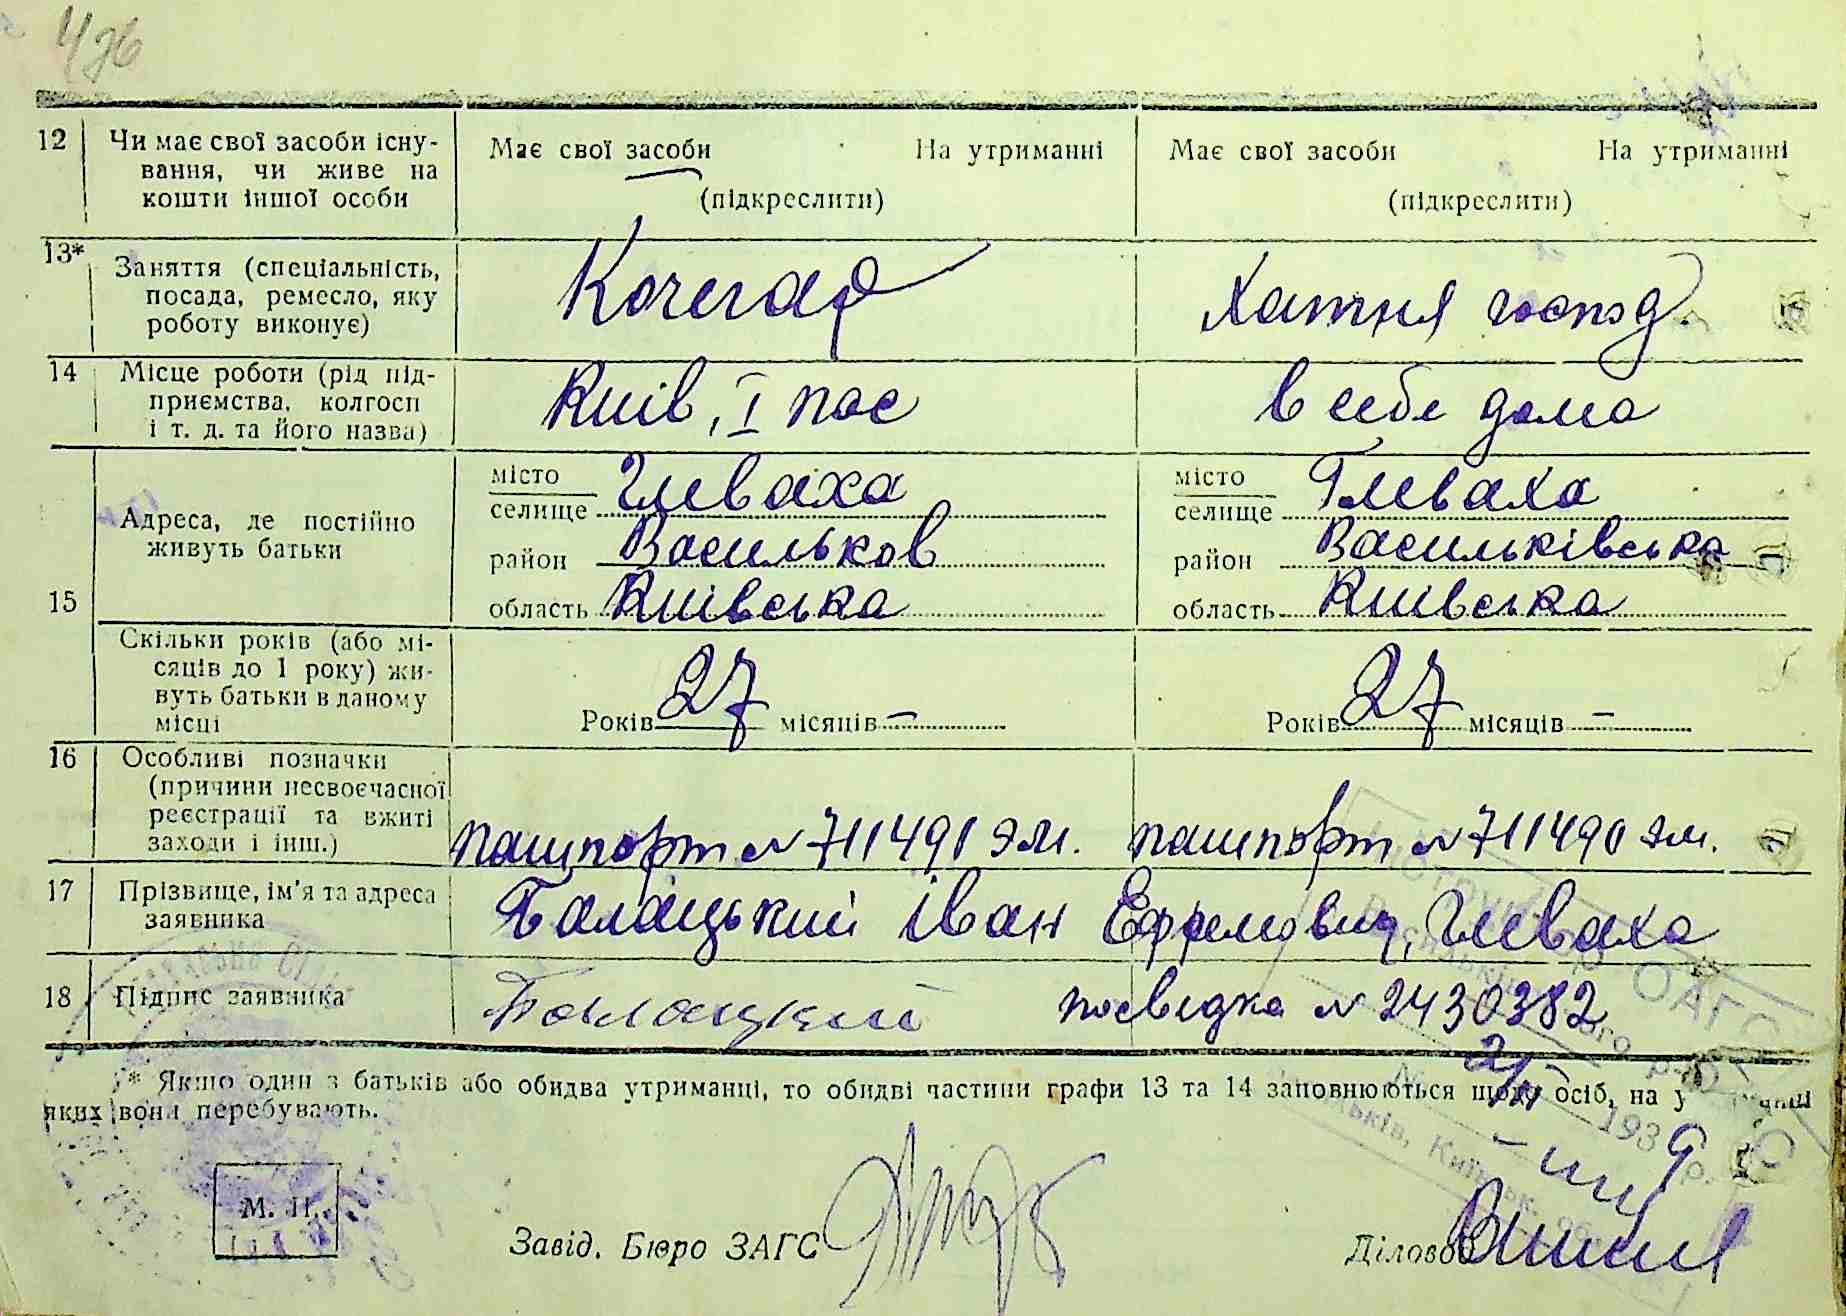 12 Чи має свої засоби існу-
вання, чи живе на
кошти іншої особи
Має свої засоби На утриманні
(підкреслити)
Має свої засоби На утриманні
(підкреслити)
13* Заняття (спеціальність,
посада, ремесло, яку
роботу виконує)
Кочегар
Хатня господ.
14 Місце роботи (рід під-
приємства, колгосп
і т. д. та його назва)
Київ, I пос
в себе дома
15 Адреса, де постійно
живуть батьки
місто
селище Глеваха
район Васильков
область Київська
місто
селище Глеваха
район Васильківська
область Київська
Скільки років (або мі-
сяців до 1 року) жи-
вуть батьки в даному
місці
Років 27 місяців –
Років 27 місяців –
16 Особливі позначки
(причини несвоєчасної
реєстрації та вжиті
заходи і інш.)
пашпорт № 711491 эм.
пашпорт № 711490 эм.
17 Прізвище, ім'я та адреса
заявника
Балацький Іван Ефремович, Глеваха
18 Підпис заявника
Балацкий
посвідка № 2430382
* Якщо один з батьків або обидва утриманці, то обидві частини графи 13 та 14 заповнюються щодо осіб, на
яких вони перебувають.
1939 р.
М. П.
Завід. Бюро ЗАГС
Діловод